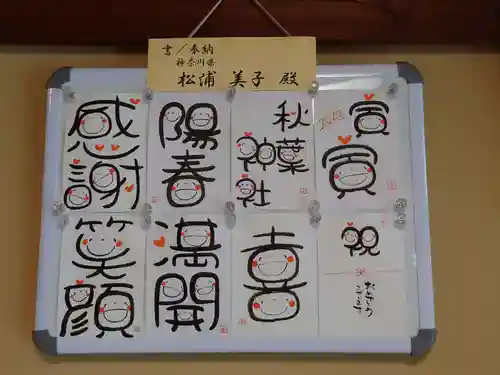 書／奉納
神奈川県
松浦 美子 殿
感謝
陽春
秋葉
神社
寅寅
笑顔
満開
喜
祝
おめでとう
ございます